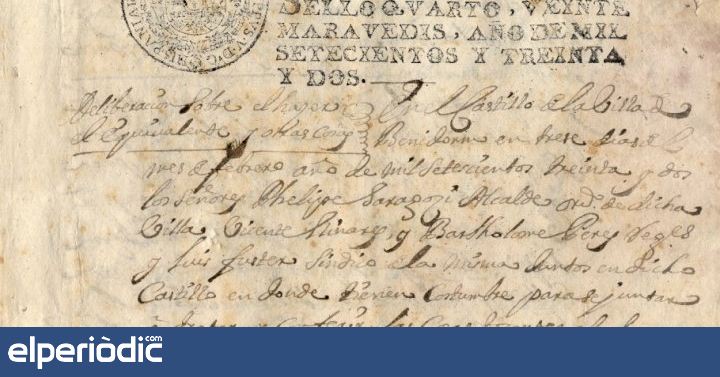 SELLO QVARTO, VEINTE
MARAVEDIS, AÑO DE MIL
SETECIENTOS Y TREINTA
Y DOS.
Deliberacion sobre el hazer
el equivalente y otras cosas
En el Castillo de la Villa de
Benidorm en trese dias del
mes de febrero año de mil setecientos treinta y dos
los señores Phelipe Saragosi Alcalde ord.º de dicha
Villa, Vicente Llinares, y Bartholome Peres Reg.es
y Luis fuster Sindico de la misma Juntos en dicho
Castillo en donde tienen costumbre para se juntar
elperiòdic.com